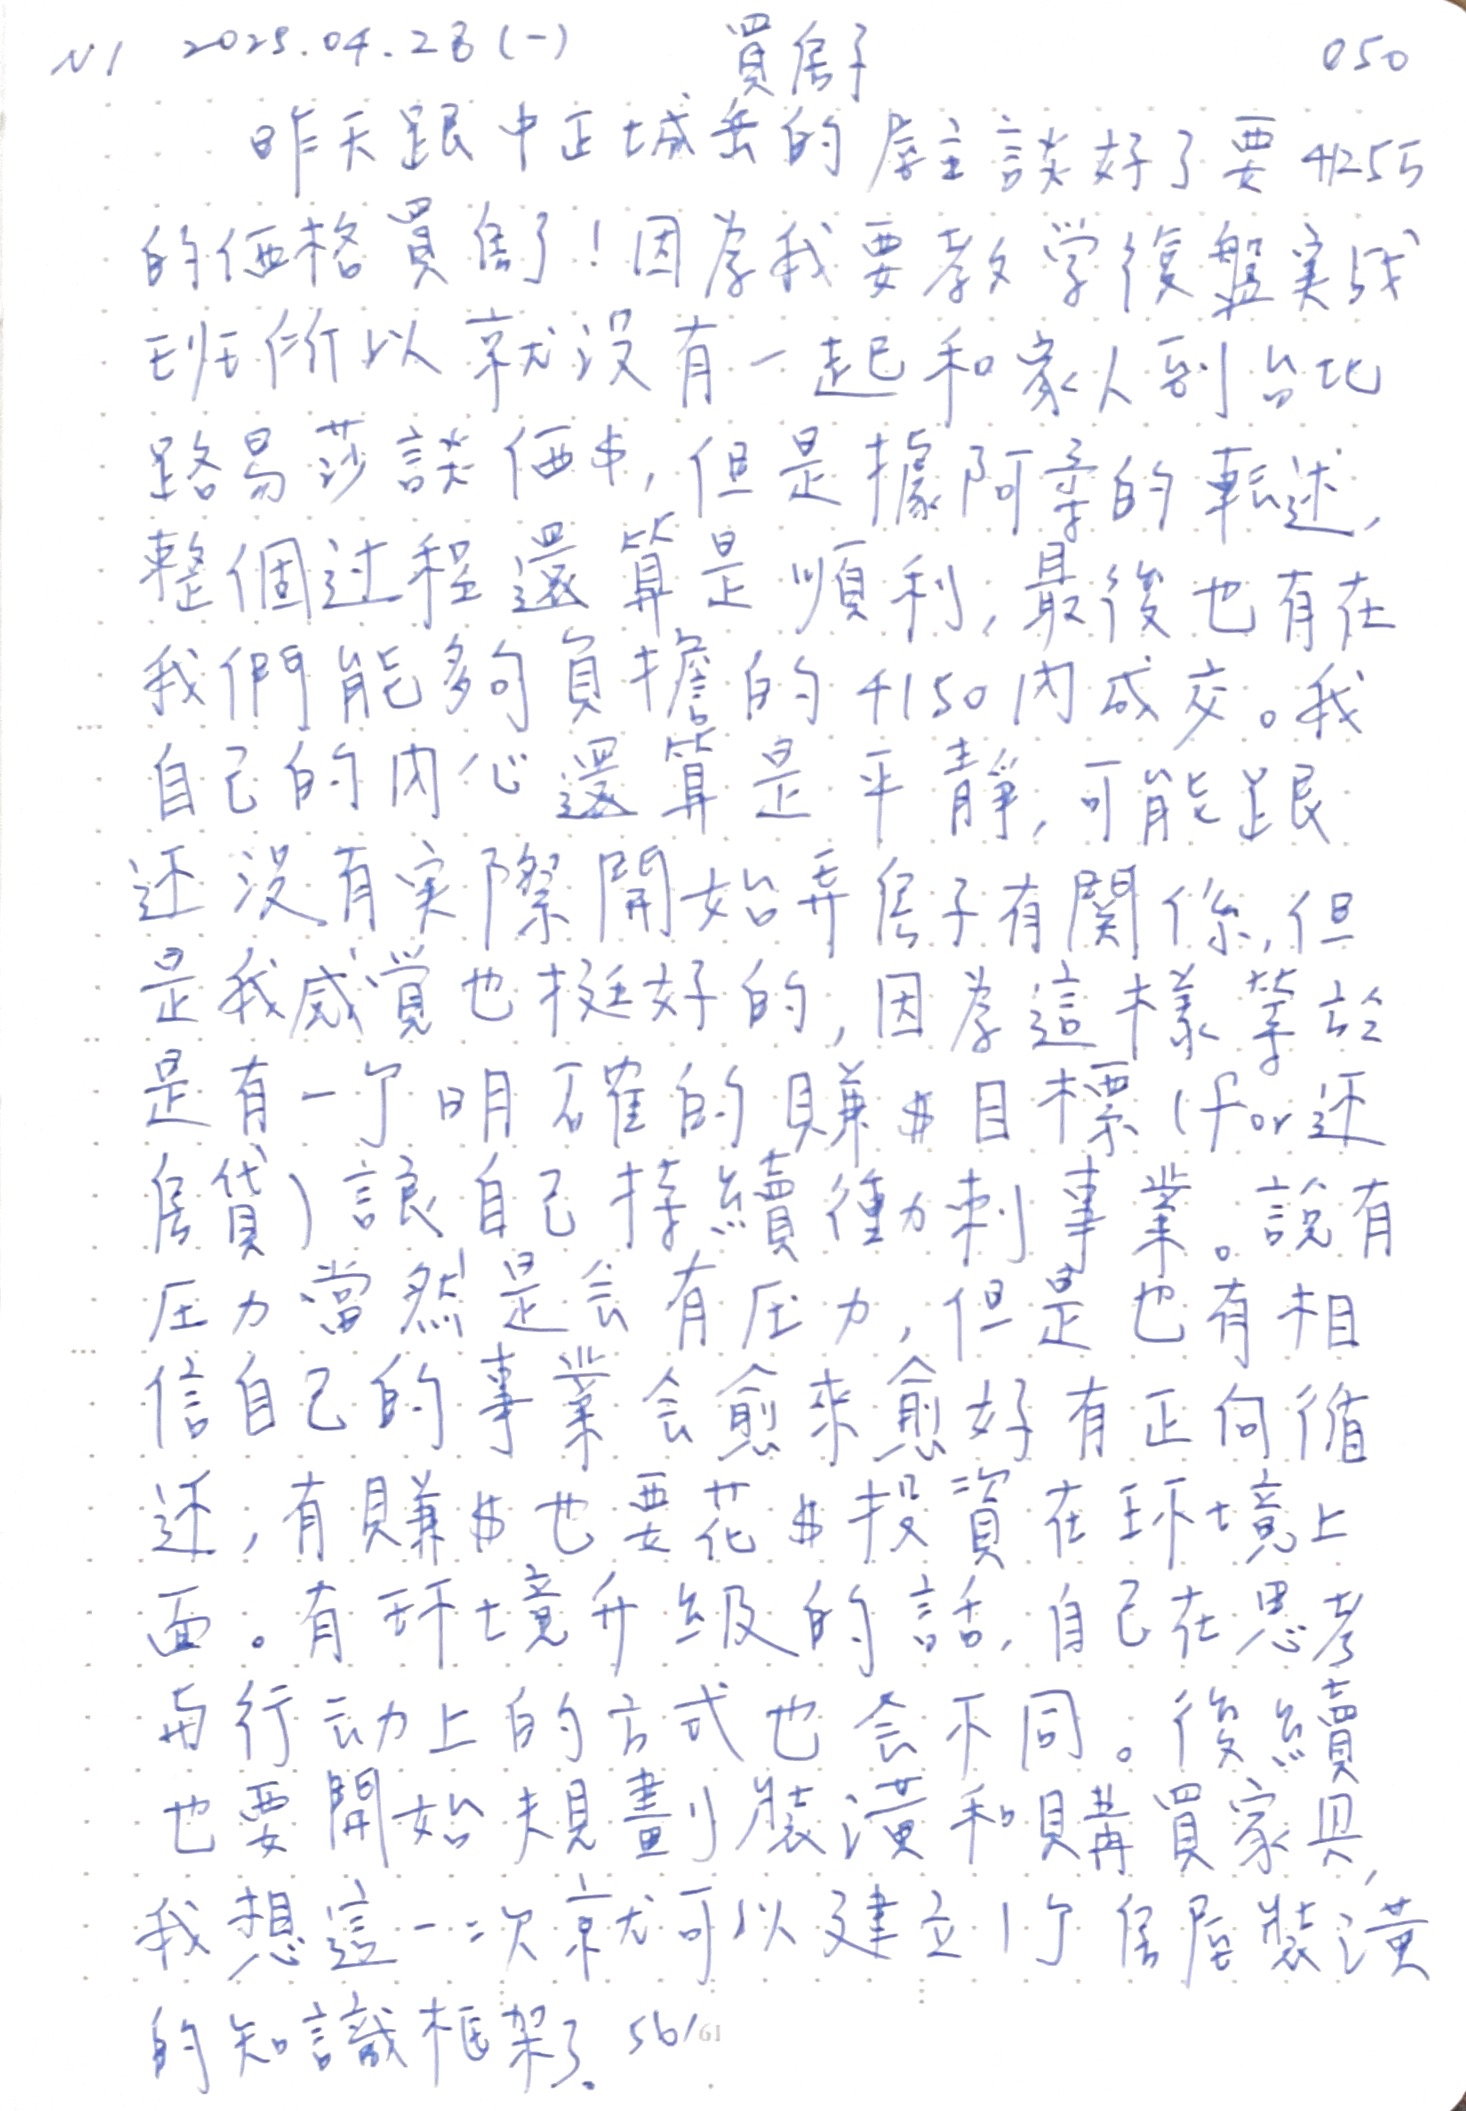 N1 2025.04.28(一) 買房子 050
昨天跟中正城岳的屋主談好了要4125万
的価格買房了！因為我要教学復盤実战
班所以就没有一起和家人到台北
路易莎談価$,但是據阿享的転述,
整個过程還算是順利,最後也有在
我們能夠負擔的4150内成交。我
自己的内心還算是平靜,可能跟
还没有実際開始弄房子有関係,但
是我感覚也挺好的,因為這樣等於
是有一个明確的賺$目標(for还
房貸)讓自己持續衝刺事業。說有
压力當然是会有压力,但是也有相
信自己的事業会愈來愈好有正向循
还,有賺$也要花$投資在环境上
面。有环境升級的話,自己在思考
与行动上的方式也会不同。後續
也要開始規劃裝潢和購買家具,
我想這一次就可以建立1个房屋裝潢
的知識框架了. 56/61